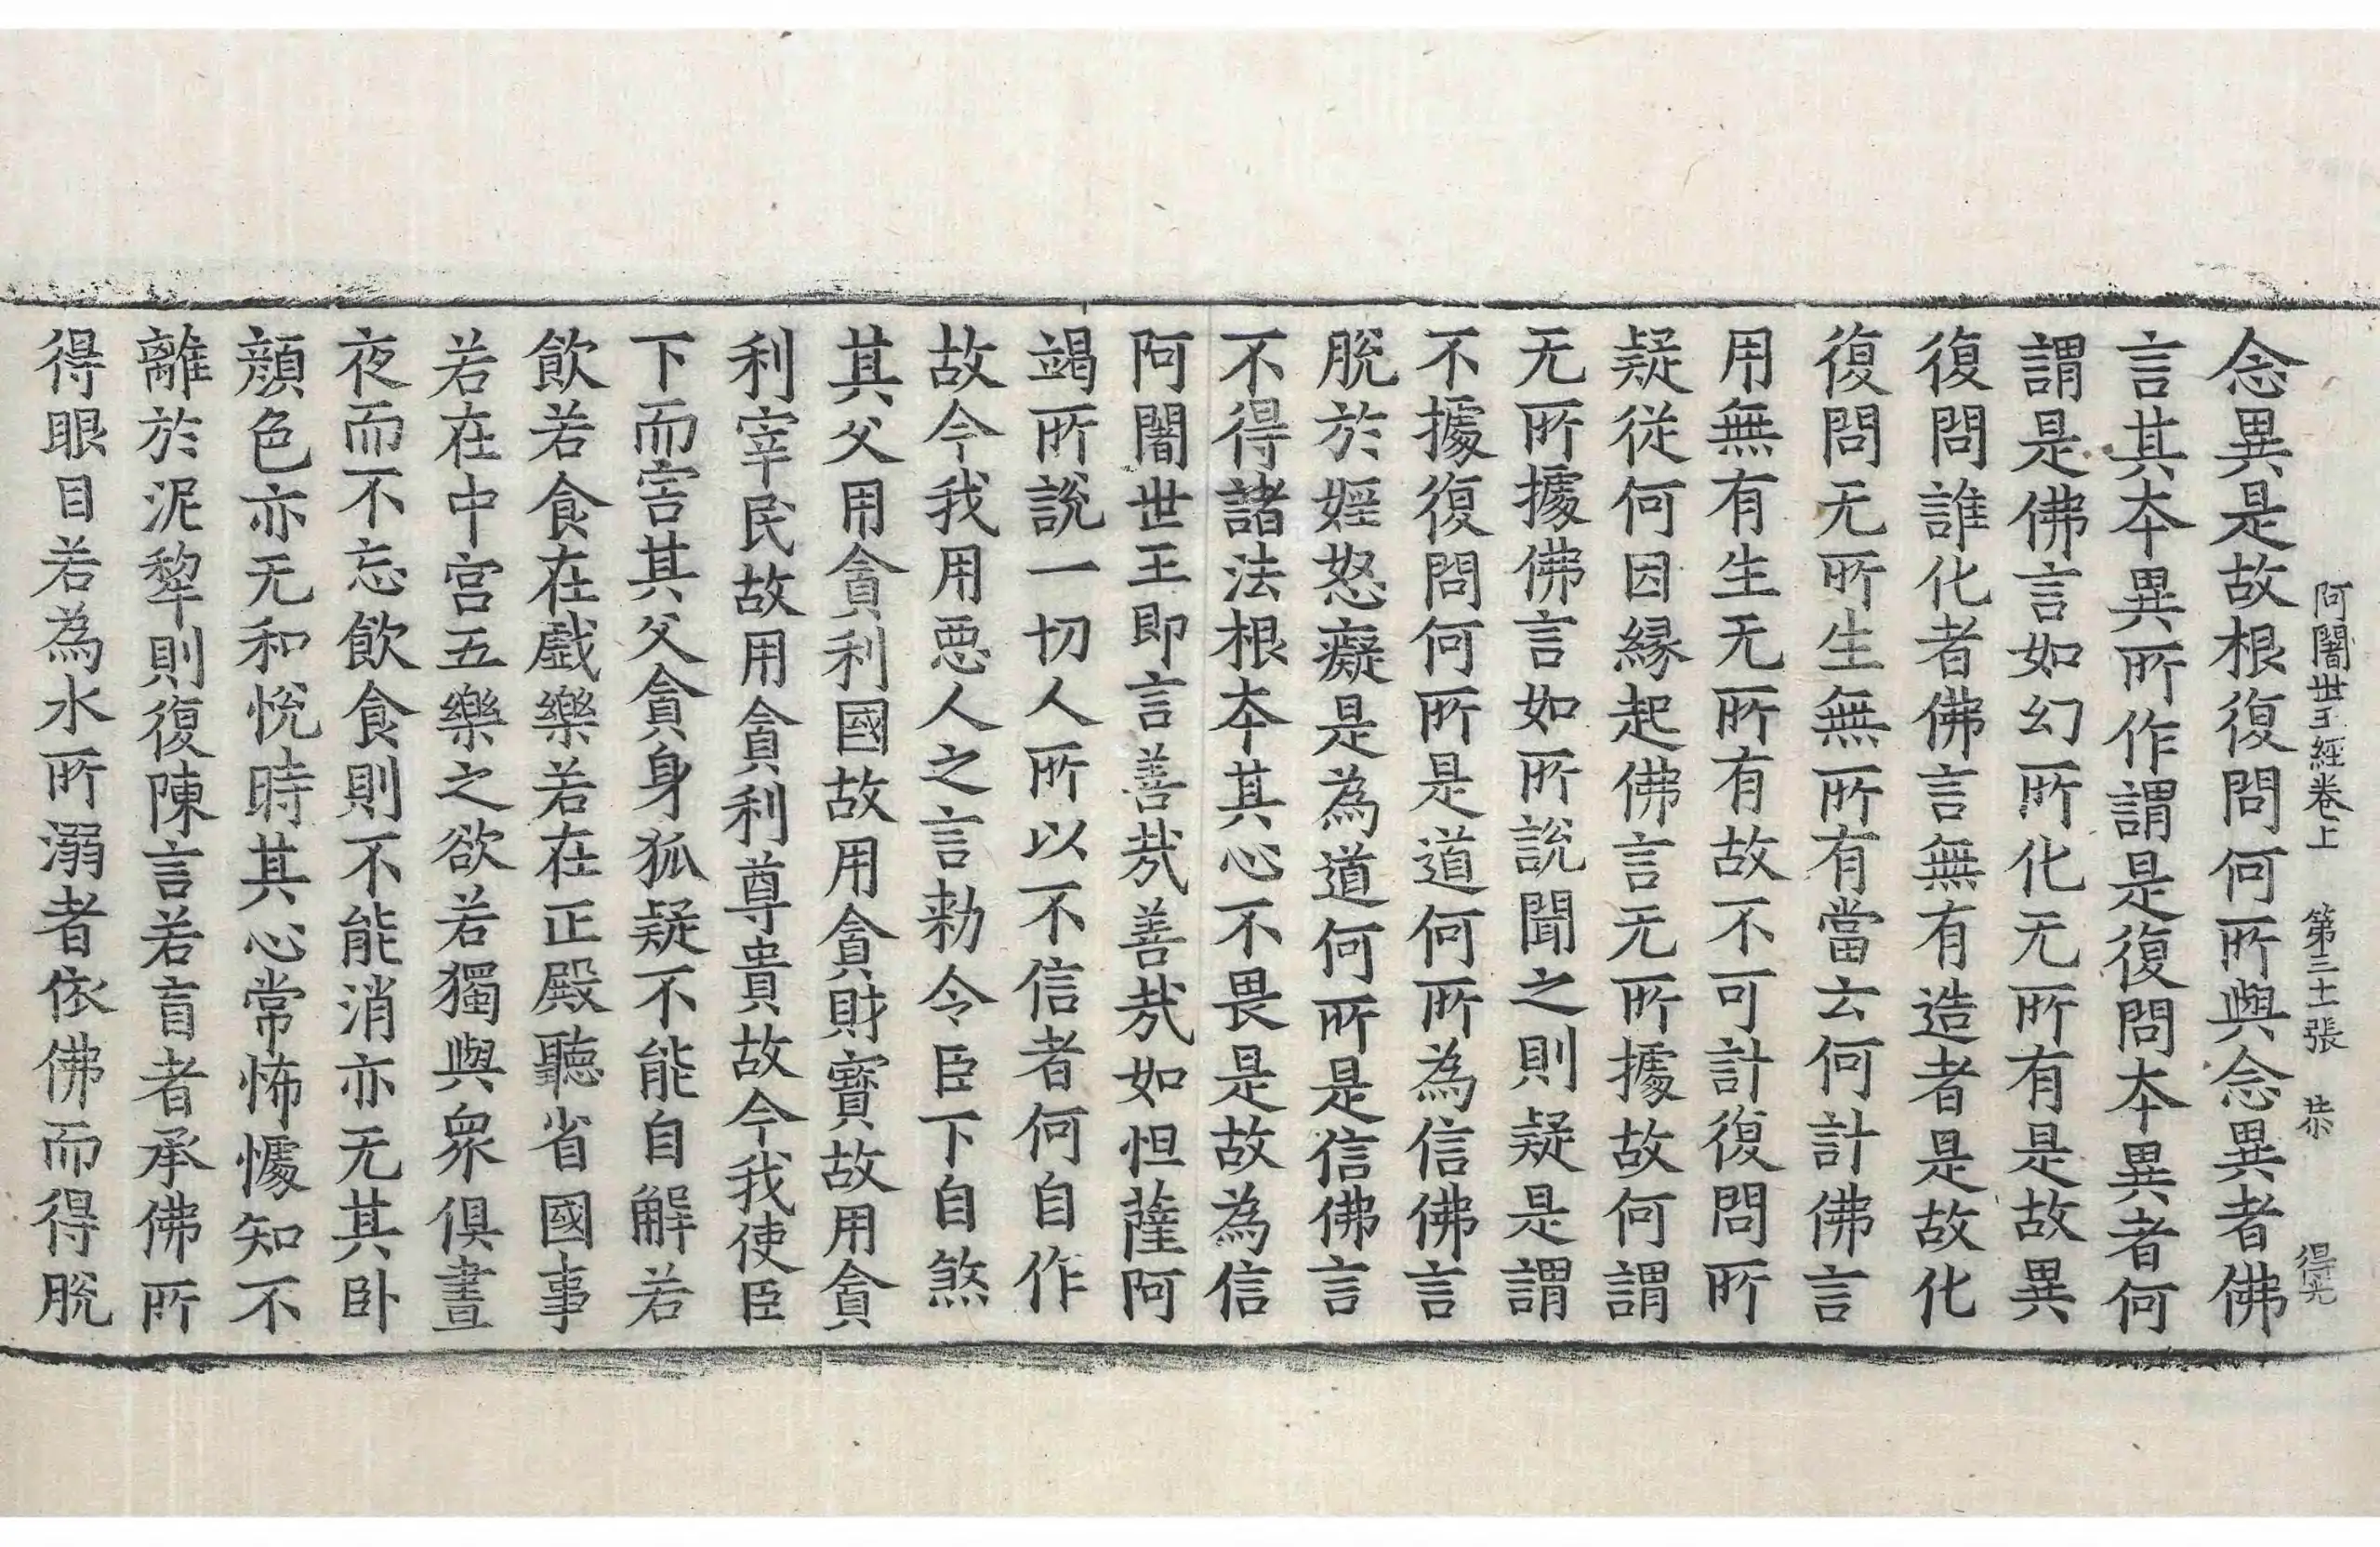 阿闍世王經卷上 第三十張 恭 得光
念異是故根復問何所與念異者佛
言其本異所作謂是復問本異者何
謂是佛言如幻所化无所有是故異
復問誰化者佛言無有造者是故化
復問无所生無所有當云何計佛言
用無有生无所有故不可計復問所
疑従何因縁起佛言无所據故何謂
无所據佛言如所說聞之則疑是謂
不據復問何所是道何所為信佛言
脫於婬怒癡是為道何所是信佛言
不得諸法根本其心不畏是故為信
阿闍世王即言善㢤善㢤如怛薩阿
竭所說一切人所以不信者何自作
故今我用惡人之言勅令臣下自煞
其父用貪利國故用貪財寳故用貪
利宰民故用貪利尊貴故今我使臣
下而害其父貪身狐疑不能自解若
飲若食在戲樂若在正殿聽省國事
若在中宮五樂之欲若獨與衆俱晝
夜而不忘飲食則不能消亦无其卧
顔色亦无和恱時其心常怖懅知不
離於泥犂則復陳言若盲者承佛所
得眼目若為水所溺者依佛而得脫